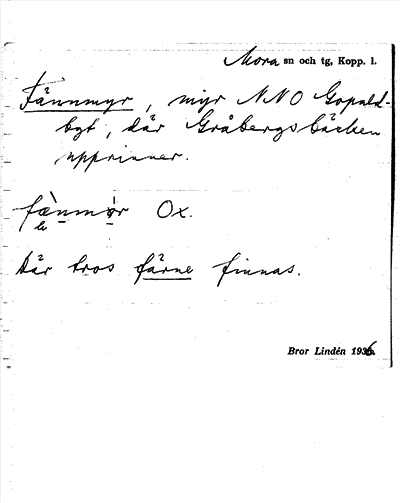 Mora sn och tg, Kopp. l.
Fännmyr, myr NNO Gopuls-
bgt, där Gråbergsbäcken
upprinner.
fænmør Ox.
Där tros färne finnas.
Bror Lindén 1936.